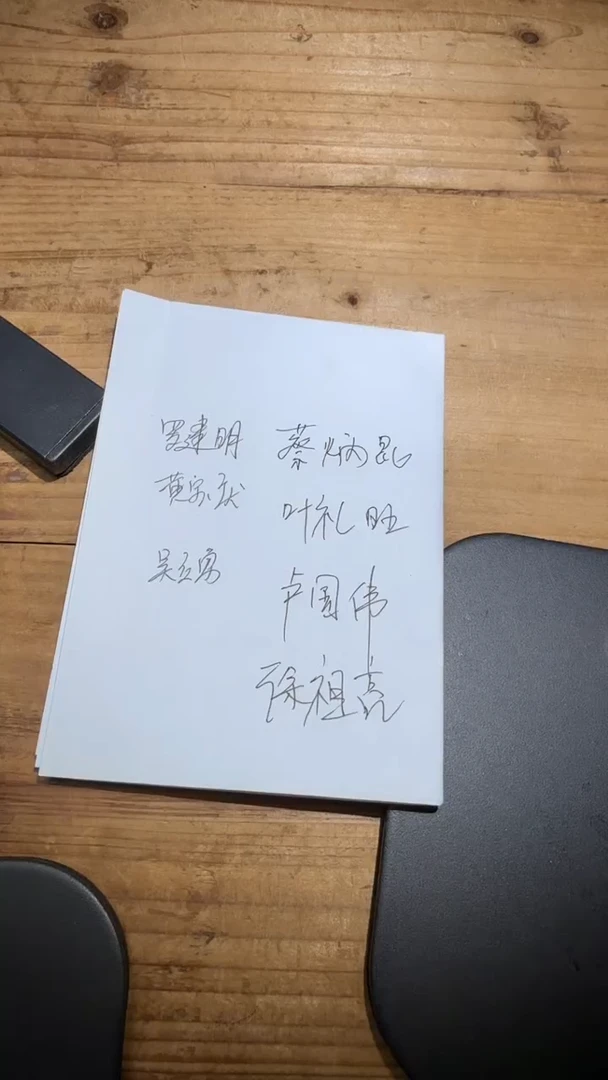 罗建明
黄宗庆
吴立勇
蔡炳昆
叶礼旺
卢国伟
徐祖亮